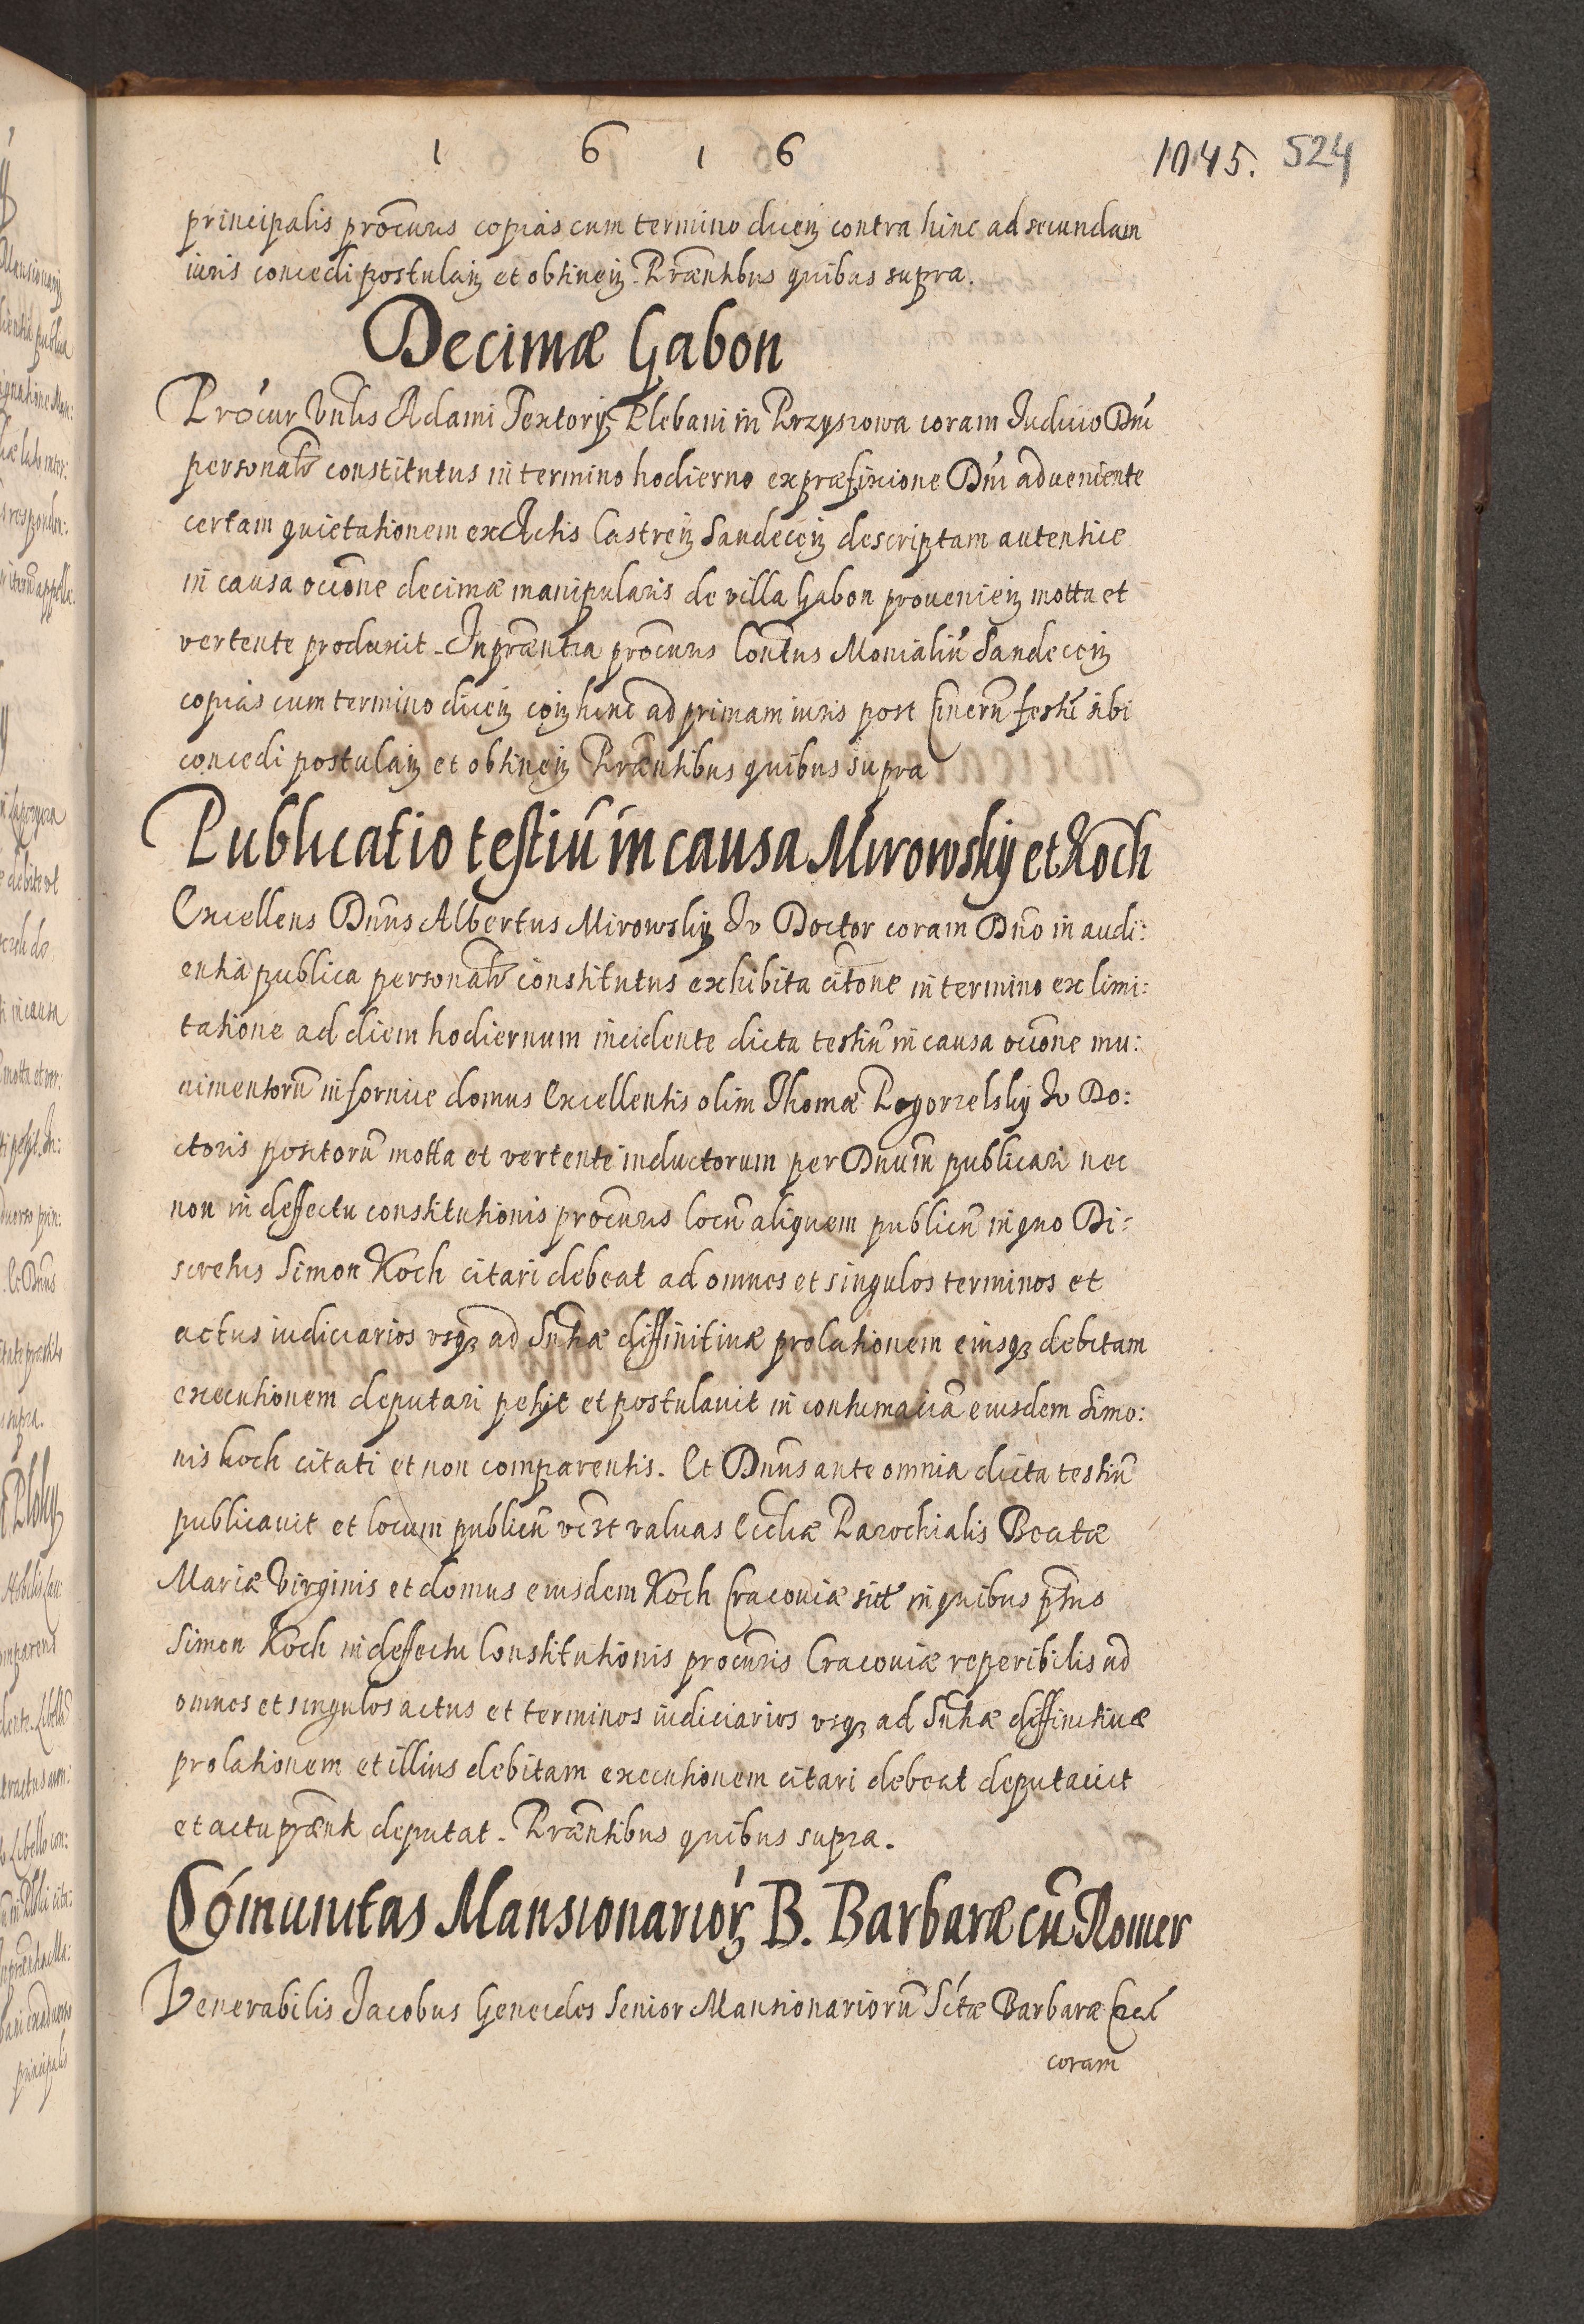 1 6 1 6
1045. 524
principalis procuris copias cum termino dicen contra hinc ad secundam
iuris concedi postulan et obtinen. Præntibus quibus supra.
Decimæ Gabon
Procur Vnlis Adami Textorii Plebani in Przyszowa coram Iudicio Dni
personalr constitutus in termino hodierno ex præfixione Dni adueniente
certam quietationem ex Actis Castren Sandecen descriptam autentice
in causa occone decimæ manipularis de villa Gabon prouenien motta et
vertente produxit. In præntia procuris Contus Monialiu Sandecen
copias cum termino dicen con hinc ad primam iuris post Cineru festu sibi
concedi postulan et obtinen Præntibus quibus supra
Publicatio testiu in causa Mirowsky et Koch
Excellens Dnns Albertus Mirowsky Iv Doctor coram Dno in audi:
entia publica personalr constitutus exhibita citone in termino ex limi:
tatione ad diem hodiernum incidente dicta testiu in causa occone mu:
nimentoru in fornice domus Excellentis olim Thomæ Pogorzelsky Iv Do:
ctoris positoru motta et vertente inductorum per Dnum publicari nec
non in deffectu constitutionis procuris locu aliquem publicu in quo Di:
scretus Simon Koch citari debeat ad omnes et singulos terminos et
actus iudiciarios vsq ad Sntiæ diffinitiuæ prolationem eiusq debitam
executionem deputari petijt et postulauit in contumacia eiusdem Simo:
nis Koch citati et non comparentis. Et Dnns ante omnia dicta testiu
publicauit et locum publicu vczt valuas Eccliæ Parochialis Beatæ
Mariæ Virginis et domus eiusdem Koch Cracouiæ sitæ in quibus ptus
Simon Koch in deffectu Constitutionis procuris Cracouiæ reperibilis ad
omnes et singulos actus et terminos iudiciarios vsq ad Sntiæ diffinitiuæ
prolationem et illius debitam executionem citari debeat deputauit
et actu prænti deputat. Præntibus quibus supra.
Comunitas Mansionarior B. Barbaræ cu Romer
Venerabilis Jacobus Geneides Senior Mansionarioru Sctæ Barbaræ
coram